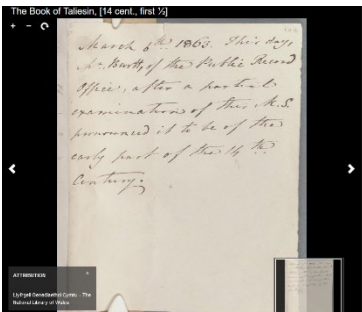 The Book of Taliesin, [14 cent., first ½]
March 6th 1863. This day,
Mr. Burtt, of the Public Record
Office, after a partial
examination of this M.S.
pronounced it to be of the
early part of the 14th
Century.
ATTRIBUTION
Llyfrgell Genedlaethol Cymru – The
National Library of Wales